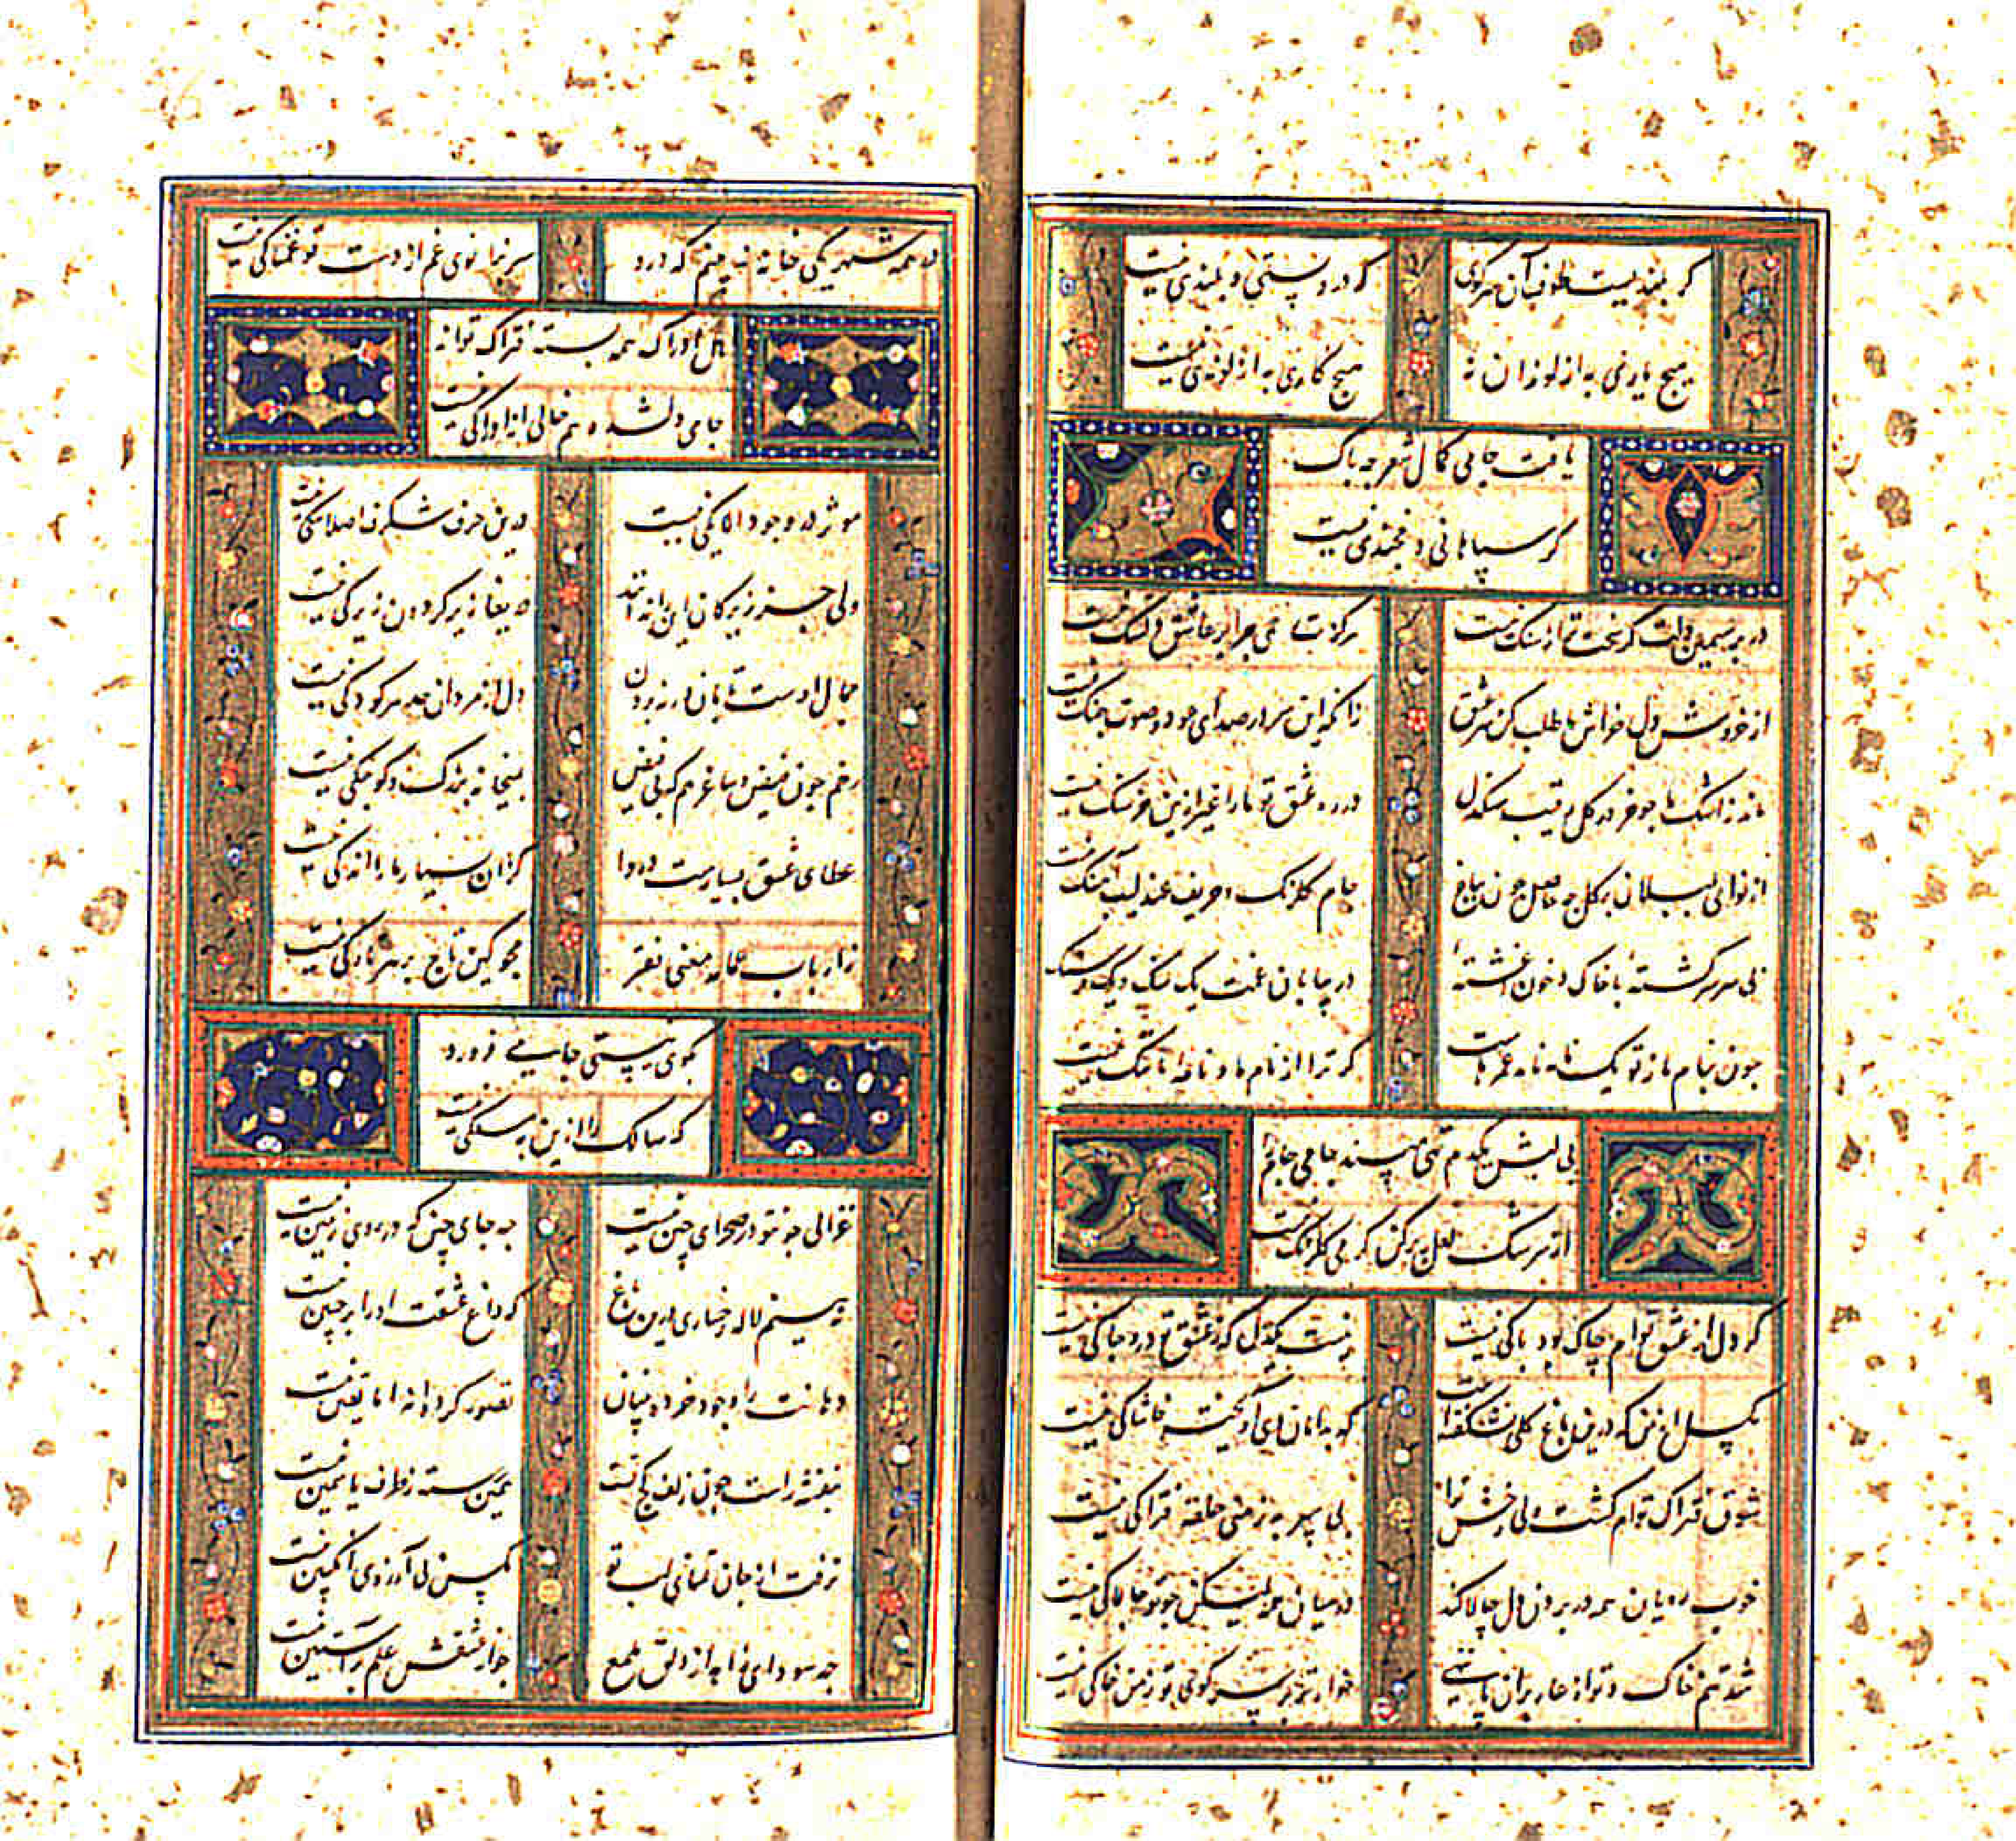 گر بلندیست طوف آن سر کوی
که درو پستی و بلندی نیست
هیچ یاری به از لوندان نه
هیچ کاری به از لوندی نیست
یافت جامی کمال شعر چه باک
گر سپاهانی و خجندی نیست
در بر سیمین دلت کر سخت تر از سنک نیست
هرکز سامی چرا بر عاشق دلتنک نیست
از خروش دل خراش ما طلب کن سر عشق
زانکه این سر در صدای عود و صوت چنک نیست
ماند ز اشک ما چو خر در کل رقیب سنکدل
در ره عشق تو ما را غیر ازین خرسنک نیست
از نوای بلبلان بر کل چه حاصل چون بباغ
جام کلرنک و حریف عندلیب آهنک نیست
بی سر سرکشتهٔ با خاک و خون آغشتهٔ
در بیابان غمت یک سنک و یک فرسنک نیست
چون بنام ما ز تو یک نامه نامد عمرهاست
کر ترا از نام ما و نامهٔ ما ننک نیست
بی لبش یکدم تهی مپسند جامی جام را
از سرشک لعل پر کن کر می کلرنک نیست
کر دل از عشق توام چاک بود باکی نیست
نیست یکدل که ز عشق تو درو چاکی نیست
مکسل از من که درین باغ کلی نشکفته است
که بدامان وی آویخته خاشاکی نیست
شوق فتراک توام کشت ولی رخش ترا
بی سپر به ز منی حلقه فتراکی نیست
خوب رویان همه در بردن دل چالاکند
در میان همه لیکن چو تو چالاکی نیست
شد تنم خاک و تو از عار بران پا ننهی
خوارتر بر سر کوی تو ز من خاکی نیست
در همه شهر یکی خانه نبینم که درو
سر بزانوی غم از دست تو غمناکی نیست
اهل ادراک همه بسته فتراک تواند
جامی دلشده هم خالی از ادراکی نیست
موثر در وجود الا یکی نیست
درین حرف شکرف اصلا شکی نیست
ولی جز زیرکان این را ندانند
دریغا زیر کردون زیرکی نیست
جمال اوست تابان ورنه بردن
دل از مردان حد هر کودکی نیست
رخم چون فیض و ساغر هم که بی فیض
بمیخانه بزرک و کوچکی نیست
عطای عشق بسیارست و دردا
کزان بسیار ما را اندکی نیست
ز ارباب عمامه معنی فقر
مجو کین تاج بر هر تارکی نیست
بکوی نیستی جامی فرو رو
که سالک را ازین به مسلکی نیست
غزالی چو تو در صحرای چین نیست
چه جای چین که در روی زمین نیست
نبینم لاله رخساری درین باغ
که داغ عشقت او را بر جبین نیست
دهانت را وجود خرده بینان
تصور کرده‌اند اما یقین نیست
بنفشه راست چون زلف کجت
سمن رسته ز طرف یاسمین نیست
نرفت از جان تمنای لب تو
مکس بی آرزوی انکبین نیست
چه سود ای خواجه از دلق ملمع
چو از عشقش علم بر آستین نیست